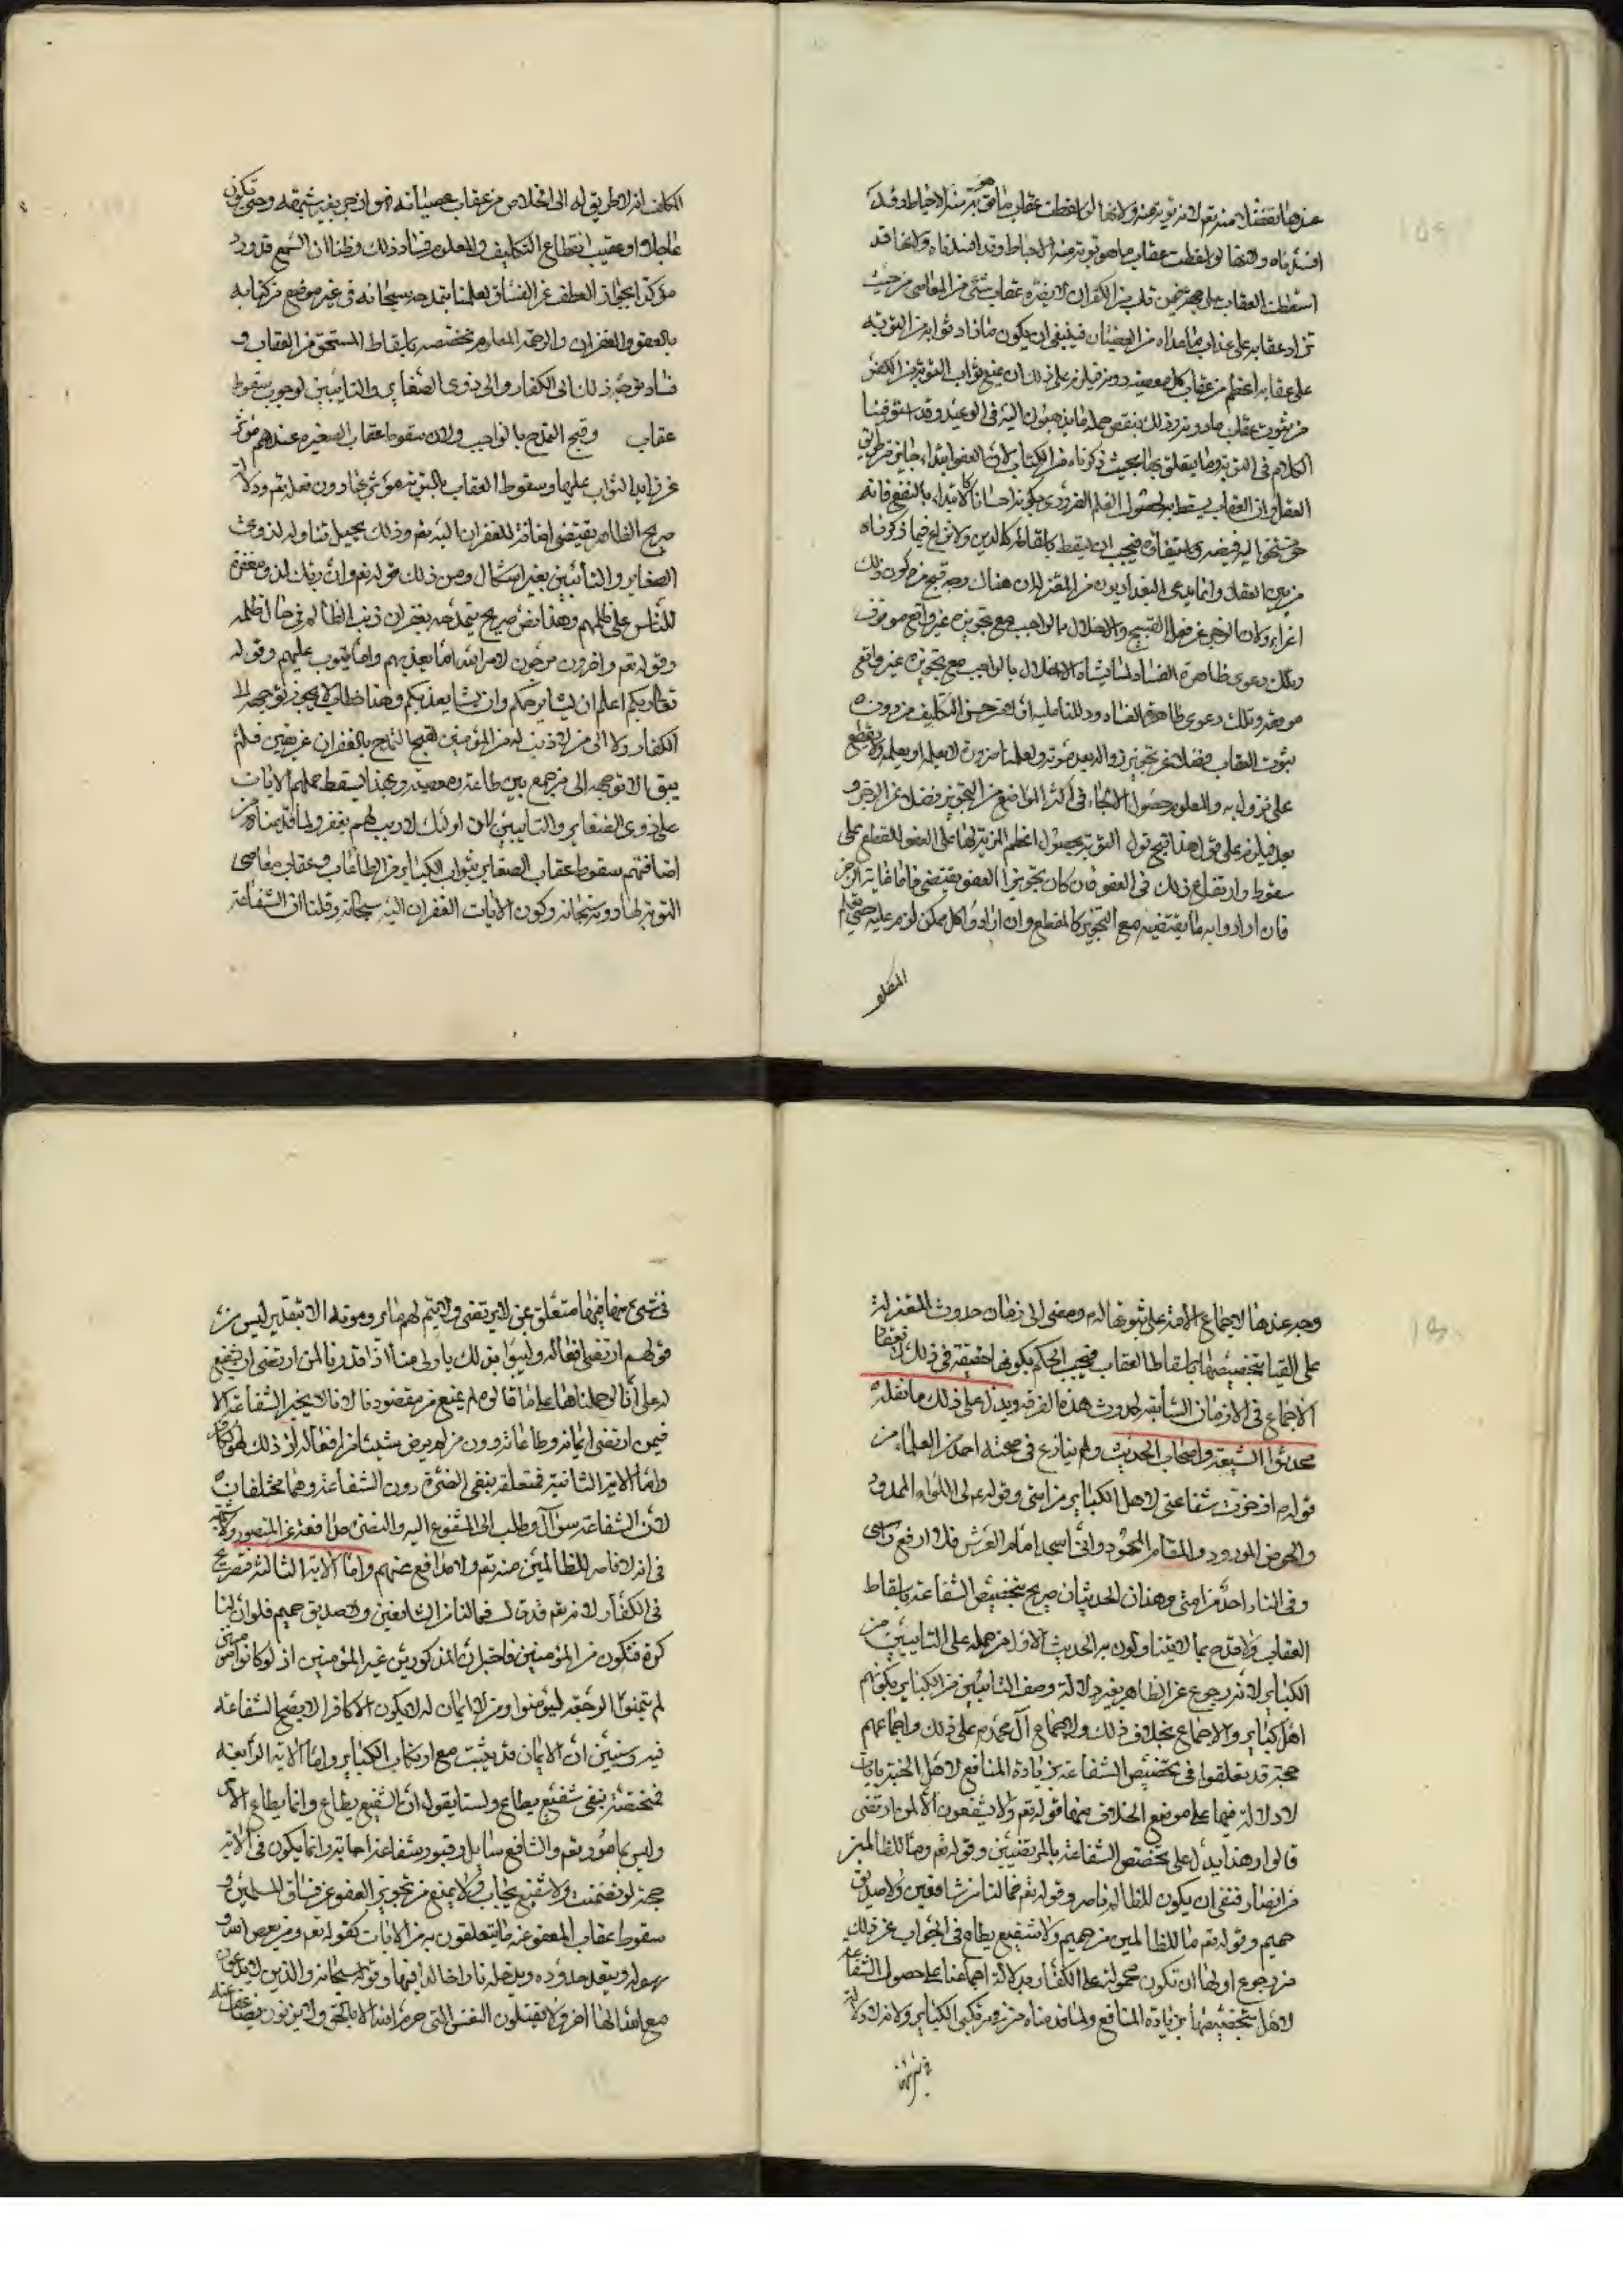 عندها تفضلا منه تعم لانه توبة منه ولانها لو اسقطت عقاب ما هو توبة منه الاحباط وقد
افسدناه ولانها لو اسقطت عقاب ما هو توبة منه الاحباط وقد افسدناه ولانها قد
اسقطت العقاب على جهة فمن تاب من الكفر ان لا يضره عقاب شئ من المعاصي من حيث
زاد عقابه على عذاب ما عداه من العصيان فينبغي ان يكون ما زاد ثوابه من التوبة
على عقابه اعظم من عقاب كل معصية دونه فيلزم على ذلك ان يمنع ثواب التوبة من الكفر
من ثبوت عقاب ما دونه وذلك ينقض جملة ما يذهبون اليه في الوعيد وقد استوفينا
الكلام في التوبة وما يتعلق بها بحيث ذكرناه من الكتاب لان العفو ابتداء جايز من طريق
العقل وان العقاب يسقط به لحصول العلم الضروري بكونه احسانا كالابتداء بالنفع فانه
حق مستحقه اليه قبضه واستيفاؤه فيجب ان يسقط باسقاطه كالدين ولا نزاع فيما ذكرناه
من بين العقلاء وانما يدعى البغداديون من المعتزلة ان هناك وجه قبح من كون ذلك
اغراء وكان الزجر عن فعل القبيح والاخلال بالواجب مع تجويزه غير واقع موقوف
وتلك دعوى ظاهرة الفساد الاخلال بالواجب مع تجويزه غير واقع
موقعه وتلك دعوى ظاهرة الفساد للتأمل حسن التكليف من دون
ثبوت العقاب فضلا عن تجويز ولعلمنا ضرورة ولا يقطع
على نزوله به والمعلوم حصول الالجاء في اكثر المواضع من التجويز فضلا عن الزجر و
بعد فيلزم على قول هذا قبح قبول التوبة بحصول اعظم المزية لها على العفو للقطع على
سقوط وارتفاع ذلك في العفو فان كان تجويز العفو يقتضي غاية الزجر
فان ارادوا به ما يقتضيه مع التجويز كالمقطع وان ارادوا كل ممكن لزم عليه حتى يعلم
المكلف
المكلف انه لا طريق له الى الخلاص من عقاب عصيانه وحتى تكون
عاجلا او عقيب انقطاع التكليف والمعلوم فساد ذلك وظننا ان السمع قد ورد
مؤكدا بجواز العفو عن الفساق لعلمنا بتمدحه سبحانه في غير موضع من كتابه
بالعفو والغفران والرحمة المعلوم تختصه باسقاط المستحق من العقاب و
فساد توجه ذلك الى الكفار والى ذوي الصغاير والتايبين لوجوب سقوط
عقاب وقبح التمدح بالواجب ولان سقوط عقاب الصغيرة عندهم موثر
عن زايد الثواب عليها وسقوط العقاب بالتوبة موثر عنها دون فعله تعم ودلالة
صريح الظاهر تقتضي اضافة للغفران اليه تعم وذلك يحيل تناوله لذوي
الصغاير والتائبين بغير اشكال ومن ذلك قوله تعم وان ربك لذو مغفرة
للناس على ظلمهم وهذا نص صريح بتمدحه بغفران ذنب الظالم في حال ظلمه
وقوله تعم واخرون مرجون لامر الله اما يعذبهم واما يتوب عليهم وقوله
تعالى ربكم اعلم ان يشا يرحمكم وان يشا يعذبكم وهذا خطاب لا يجوز توجهه الى
الكفار ولا الى من لا ذنب له من المؤمنين لقبح التمدح بالغفران عن هذين فلم
يبق الا توجهه الى من جمع بين طاعة ومعصية وبهذا يسقط حملهم الايات
على ذوي الصغاير والتايبين لان اولئك لا ريب لهم يغفر ولما قدمناه من
اضافتهم سقوط عقاب الصغاير بثواب الكباير من الطاعات وعقاب معاصي
التوبة لها دونه سبحانه وكون الايات الغفران اليه سبحانه وقلنا ان الشفاعة
وجه عندها لاجماع الامة على ثبوتها له ومضى الى زمان حدوث المعتزلة
على القيا بتخصيصها باسقاط العقاب فيجب الحكم بكونها حقيقة في ذلك لانعقاد
الاجماع في الازمان السابقة لحدوث هذه الفرقة ويدل على ذلك ما نقله
محدثوا الشيعة واصحاب الحديث ولم ينازع في صحته احد من العلماء من
قوله ادخرت شفاعتي لاهل الكبائر من امتي وقوله لي اللواء الممدود
والحوض المورود والمقام المحمود واني اسجد امام العرش فلا ارفع راسي
وفي النار احد من امتي وهذان الحديثان صريح بتخصيص الشفاعة باسقاط
العقاب ولا قدح بما لا يتناولون به الحديث الاول من حمله على التايبين من
الكباير لانه رجوع عن الظاهر بغير دلالة وصف التائبين من الكباير بكونهم
اهل كباير والاجماع بخلاف ذلك ولاجماع آل محمد على ذلك واجماعهم
حجة قد تعلقوا في تخصيص الشفاعة بزيادة المنافع لاهل الجنة بايات
لا دلالة فيها على موضع الخلاف منها قوله تعم ولا يشفعون الا لمن ارتضى
قالوا وهذا يدل على تختص الشفاعة بالمرتضين وقوله تعم وما للظالمين
من انصار فنفى ان يكون للظالم ناصر وقوله تعم فما لنا من شافعين ولا صديق
حميم وقوله تعم ما للظالمين من حميم ولا شفيع يطاع في الجواب عن ذلك
من رجوع اولها ان تكون محمولة على الكفار بدلالة اجماعنا على حصول الشفاعة
لاهل بتخصيصها بزيادة المنافع ولما قدمناه مرتكبي الكباير ولانه لا دلالة
في شئ
في شئ منها فيها متعلق لمن ارتضى ولا يتم لهم ما يرومونه الا بتقدير ليس من
قولهم ارتضى افعاله وليسوا بذلك باولى منا اذا قدرنا لمن ارتضى ان يشفع
له على انا لو حملناها على ما قالوه لم يمنع من مقصودنا لانا لا نخير الشفاعة الا
فيمن ارتضى ايمانه وطاعاته دون من لم يرض شيئا من افعاله اذ ذلك هو الكفار
واما الاية الثانية فمتعلقه بنفي النصرة دون الشفاعة وهما مختلفان
لان الشفاعة سوال وطلب الى المشفوع اليه والنصرة مدافعة عن المنصور ولا شبهة
في انه لا ناصر للظالمين منه تعم ولا مدافع عنهم واما الاية الثالثة فصريح
في الكفار لانه تعم قد قال فما لنا من الشافعين ولا صديق حميم فلو ان لنا
كرة فنكون من المؤمنين فاخبر ان المذكورين غير المؤمنين اذ لو كانوا مؤمنين
لم يتمنوا الرجعة ليؤمنوا ومن لا ايمان له لا يكون الا كافرا لا يصح الشفاعة
فيه وسنبين ان الايمان قد يثبت مع ارتكاب الكباير واما الاية الرابعة
فمختصة بنفي شفيع يطاع ولسنا نقول ان الشفيع يطاع وانما يطاع الامر
وليس بما هو وتعم والشافع سايل وقبول شفاعة اجابة وانما يكون في الاية
حجة لو تضمنت ولا شفيع يجاب ولا يمنع من تجويز العفو عن فساق المسلمين و
سقوط عقاب المعفو عنه ما يتعلقون به من الايات كقوله تعم ومن يعص الله و
رسوله ويتعد حدوده يدخله نارا خالدا فيها وقوله سبحانه والذين لا يدعون
مع الله الها اخر ولا يقتلون النفس التي حرم الله الا بالحق ولا يزنون